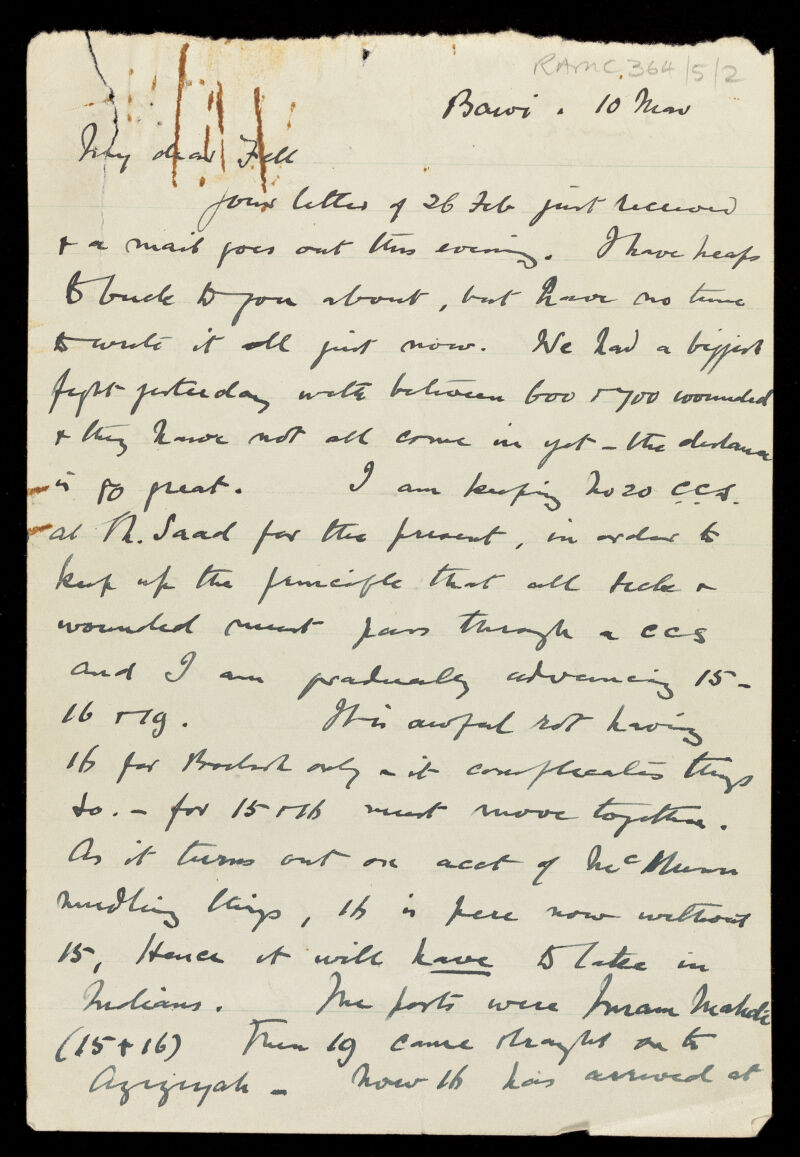 RAMC 364/5/2
Bawi. 10 Mar
My dear Fell
Your letter of 26 Feb just received
& a mail goes out this evening. I have heaps
to buck to you about, but have no time
to write it all just now. We had a biggish
fight yesterday with between 600 & 700 wounded
& they have not all come in yet – the distance
is so great. I am keeping No 20 C.C.S.
at Sh. Saad for the present, in order to
keep up the principle that all sick &
wounded must pass through a CCS
and I am gradually advancing 15 –
16 & 19. It is awful rot having
16 for British only – it complicates things
so. – for 15 & 16 must move together.
As it turns out on acct of McMunn
muddling things, 16 is here now without
15, Hence it will have to take in
Indians. The posts were Imam Mahdi
(15 & 16) Then 19 came straight on to
Aziziyah – Now 16 has arrived at